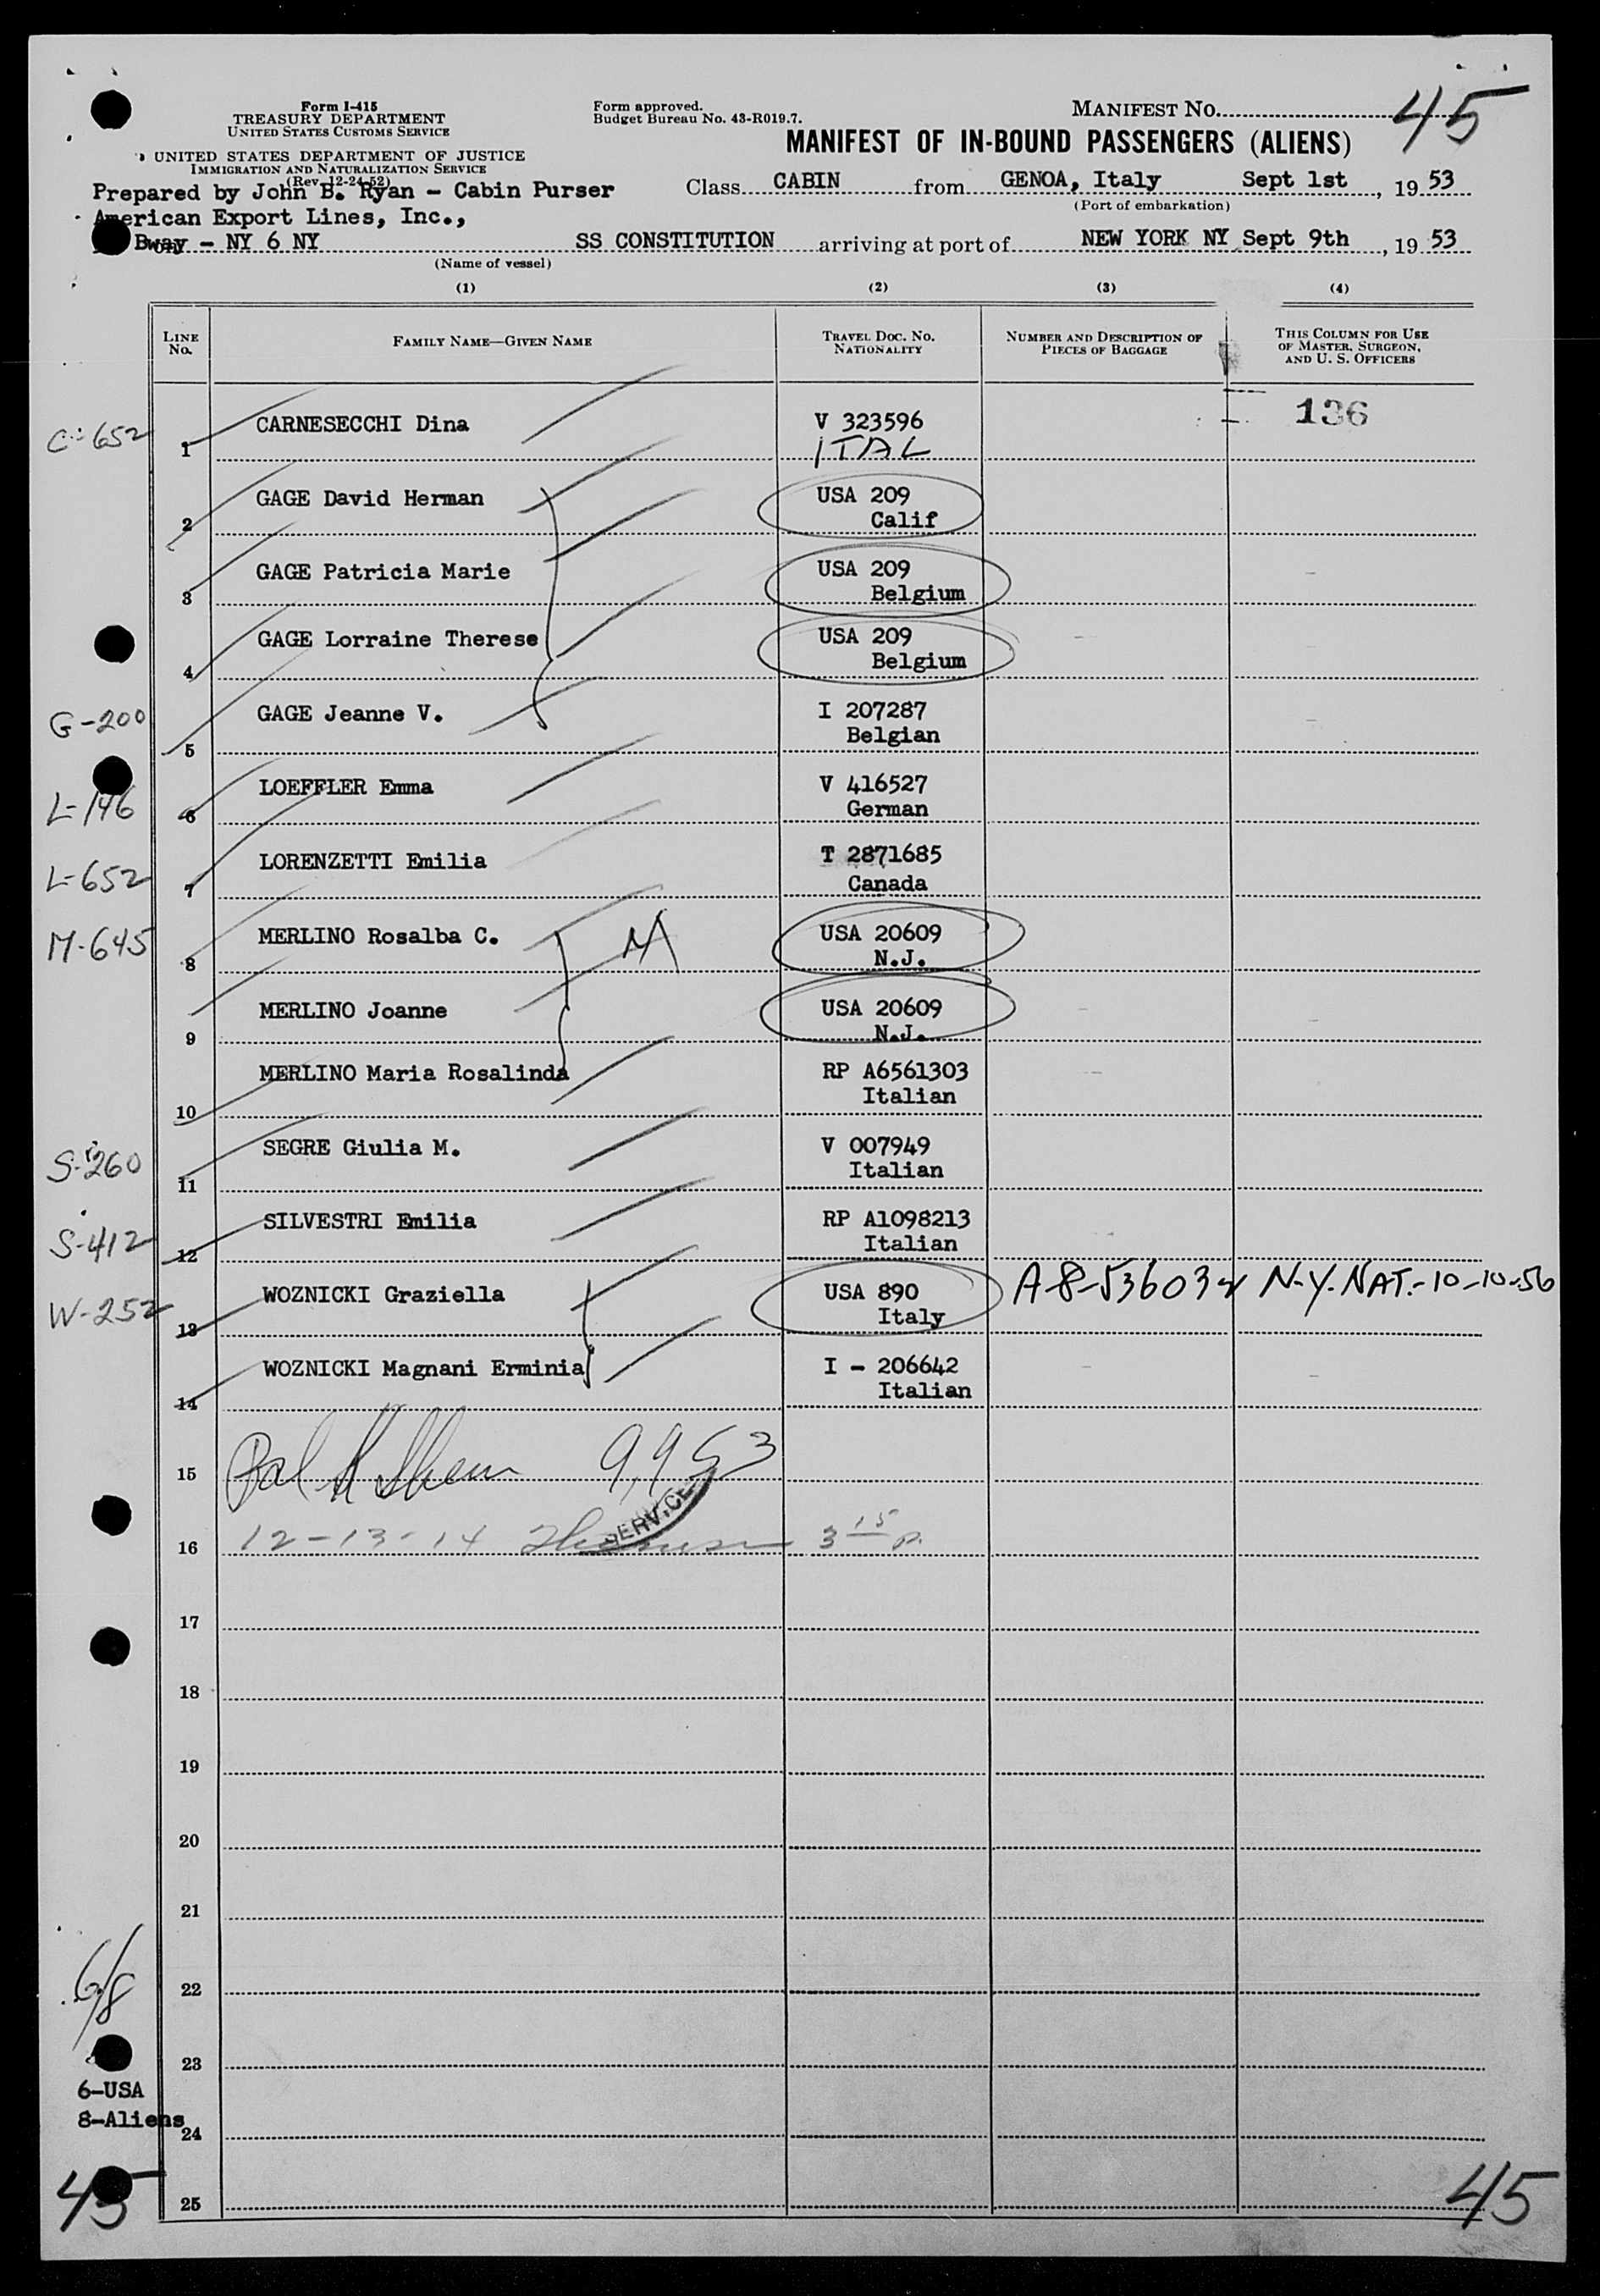 Form I-415
TREASURY DEPARTMENT
UNITED STATES CUSTOMS SERVICE
UNITED STATES DEPARTMENT OF JUSTICE
IMMIGRATION AND NATURALIZATION SERVICE
(Rev. 12-24-52)
Form approved.
Budget Bureau No. 43-R019.7.
MANIFEST NO. 45
MANIFEST OF IN-BOUND PASSENGERS (ALIENS)
Prepared by John B. Ryan - Cabin Purser
American Export Lines, Inc.,
Bway - NY 6 NY
Class CABIN from GENOA, Italy Sept 1st, 19 53
(Port of embarkation)
SS CONSTITUTION arriving at port of NEW YORK NY Sept 9th, 19 53
(Name of vessel)
(1) (2) (3) (4)
LINE No. FAMILY NAME—GIVEN NAME TRAVEL DOC. NO. NATIONALITY NUMBER AND DESCRIPTION OF PIECES OF BAGGAGE THIS COLUMN FOR USE OF MASTER, SURGEON, AND U. S. OFFICERS
136
C-652 1 CARNESECCHI Dina V 323596
ITAL
2 GAGE David Herman USA 209
Calif
3 GAGE Patricia Marie USA 209
Belgium
4 GAGE Lorraine Therese USA 209
Belgium
G-200 5 GAGE Jeanne V. I 207287
Belgian
L-146 6 LOEFFLER Emma V 416527
German
L-652 7 LORENZETTI Emilia T 2871685
Canada
M-645 8 MERLINO Rosalba C. M USA 20609
N.J.
9 MERLINO Joanne USA 20609
N.J.
10 MERLINO Maria Rosalinda RP A6561303
Italian
S-260 11 SEGRE Giulia M. V 007949
Italian
S-412 12 SILVESTRI Emilia RP A1098213
Italian
W-252 13 WOZNICKI Graziella USA 890 A-8-536032 N-Y. NAT.-10-10-56
Italy
14 WOZNICKI Magnani Erminia I - 206642
Italian
15 9,9 53
SERVICE
16 12-13-14 3 15 p.
17
18
19
20
21
22
6/8
23
6-USA
8-Aliens
24
25
45 45